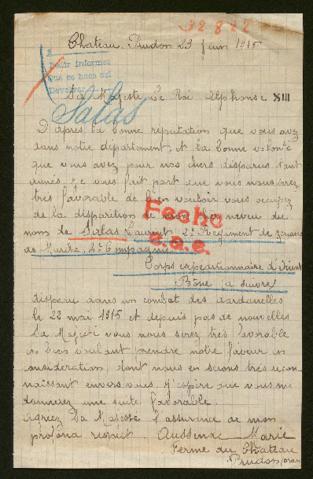 32822
Chateau Prudon 23 juin 1915
Salas
Sa Majesté Le Roi Alphonse XIII
D'apres la bonne reputation que vous avez
dans notre departement, et la bonne volonté
que vous avez pour nos chers disparus tant
aimés. Je vous fait part que vous nous serez
tres favorable de bien vouloir vous occuper
de la disparition de mon neveu du
nom de Salas Laurent 2e Regiment de zouaves
de Marche, 4e Compagnie
Fecho
Corps expeditionnaire d'orient
Bône a suivre
disparu dans un combat des dardanelles
le 22 mai 1915 et depuis pas de nouvelles
Sa Majesté vous nous serez tres favorable
en bien voulant prendre notre faveur en
consideration, dont nous en serons tres recon
naissant envers vous. J'espere que vous me
donnerez une suite favorable.
Agréez Sa Majesté l'assurance de mon
profond respect Marie
Ferme du Chateau
Prudon